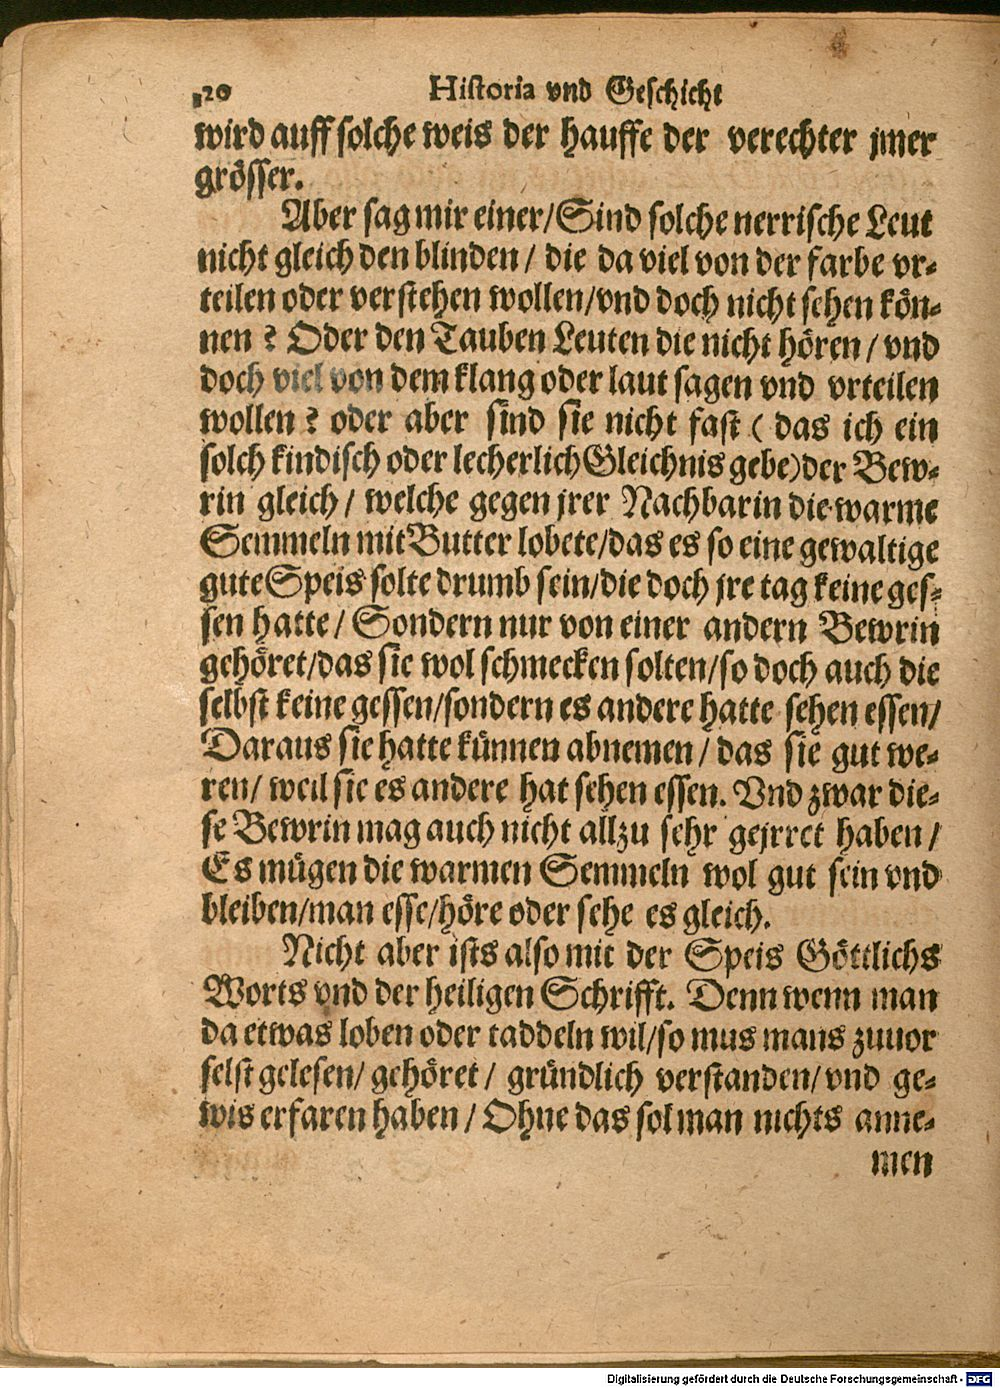 120 Historia vnd Geschicht
wird auff solche weis der hauffe der verechter jmer
grösser.
Aber sag mir einer/Sind solche nerrische Leut
nicht gleich den blinden/ die da viel von der farbe vr-
teilen oder verstehen wollen/vnd doch nicht sehen kön-
nen? Oder den Tauben Leuten die nicht hören/ vnd
doch viel von dem klang oder laut sagen vnd vrteilen
wollen? oder aber sind sie nicht fast (das ich ein
solch kindisch oder lecherlich Gleichnis gebe) der Bew-
rin gleich/ welche gegen jrer Nachbarin die warme
Semmeln mit Butter lobete/das es so eine gewaltige
gute Speis solte drumb sein/die doch jre tag keine ges-
sen hatte/ Sondern nur von einer andern Bewrin
gehöret/das sie wol schmecken solten/so doch auch die
selbst keine gessen/sondern es andere hatte sehen essen/
Daraus sie hatte künnen abnemen/ das sie gut we-
ren/ weil sie es andere hat sehen essen. Vnd zwar die-
se Bewrin mag auch nicht allzu sehr gejrret haben/
Es mügen die warmen Semmeln wol gut sein vnd
bleiben/man esse/höre oder sehe es gleich.
Nicht aber ists also mit der Speis Göttlichs
Worts vnd der heiligen Schrifft. Denn wenn man
da etwas loben oder taddeln wil/so mus mans zuuor
selst gelesen/ gehöret/ gründlich verstanden/vnd ge-
wis erfaren haben/ Ohne das sol man nichts anne-
men
Digitalisierung gefördert durch die Deutsche Forschungsgemeinschaft - DFG